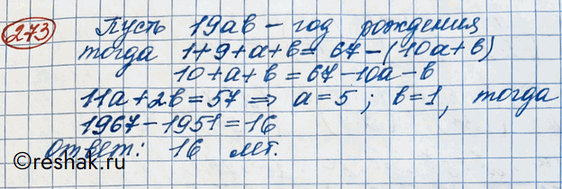 273 Пусть 19ab - год рождения
тогда 1+9+a+b = 67-(10a+b)
10+a+b = 67-10a-b
11a+2b=57 ⇒ a=5; b=1, тогда
1967-1951=16
Ответ: 16 лет.
©reshak.ru